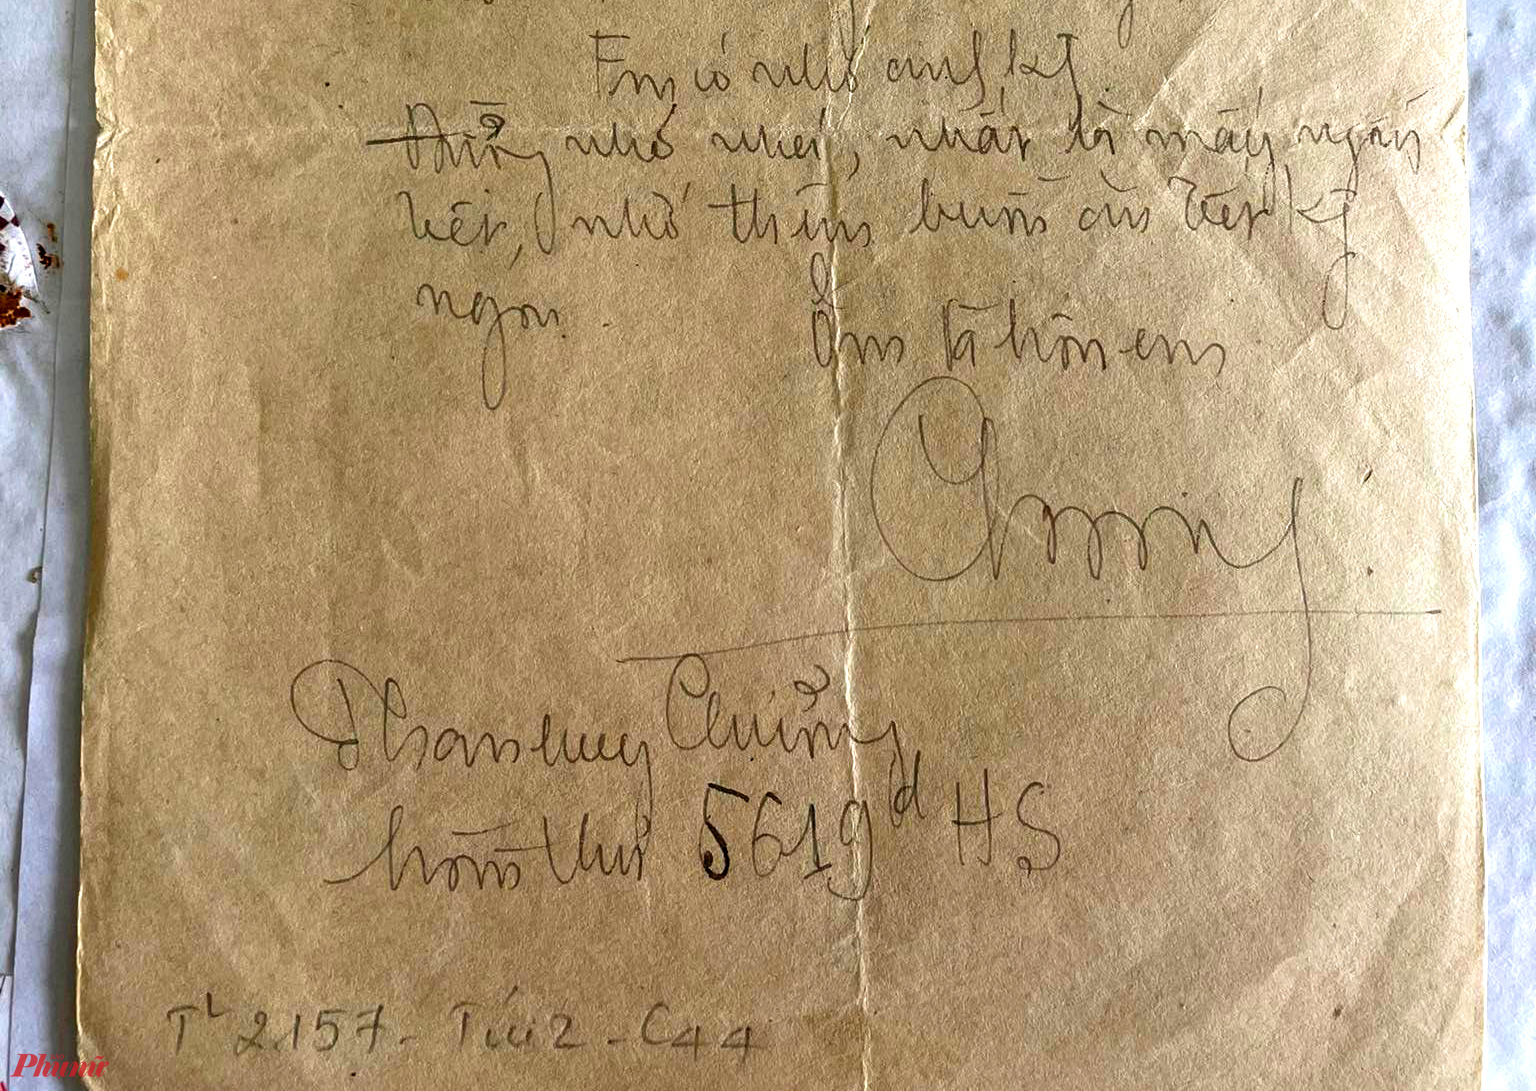 Em có nhớ anh kg
Đừng nhớ nhé, nhất là mấy ngày
tết, nhớ thêm buồn ăn tết kg
ngon.
Ôm và hôn em
Phan huy Chưởng
hòm thư 5619d HS
TL 2.157 - Túi 2 - C44
Phunữ